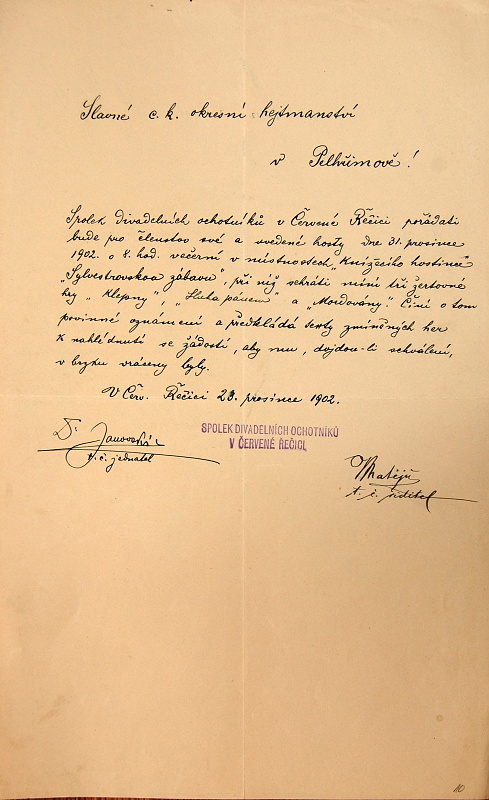 Slavné c. k. okresní hejtmanství
v Pelhřimově!
Spolek divadelních ochotníků v Červené Řečici pořádati
bude pro členstvo své a uvedené hosty dne 31. prosince
1902. o 8. hod. večerní v místnostech "Knížecího hostince"
"Sylvestrovskou zábavu", při níž sehráti míní tři žertovné
hry "Klepny", "Sluha pánem" a "Mordovány". Činí o tom
povinné oznámení a předkládá texty zmíněných her
k nahlédnutí se žádostí, aby mu, dojdou-li schválení,
v brzku vráceny byly.
V Červ. Řečici 23. prosince 1902.
SPOLEK DIVADELNÍCH OCHOTNÍKŮ
V ČERVENÉ ŘEČICI.
t. č. jednatel
Matějů
t. č. ředitel
10